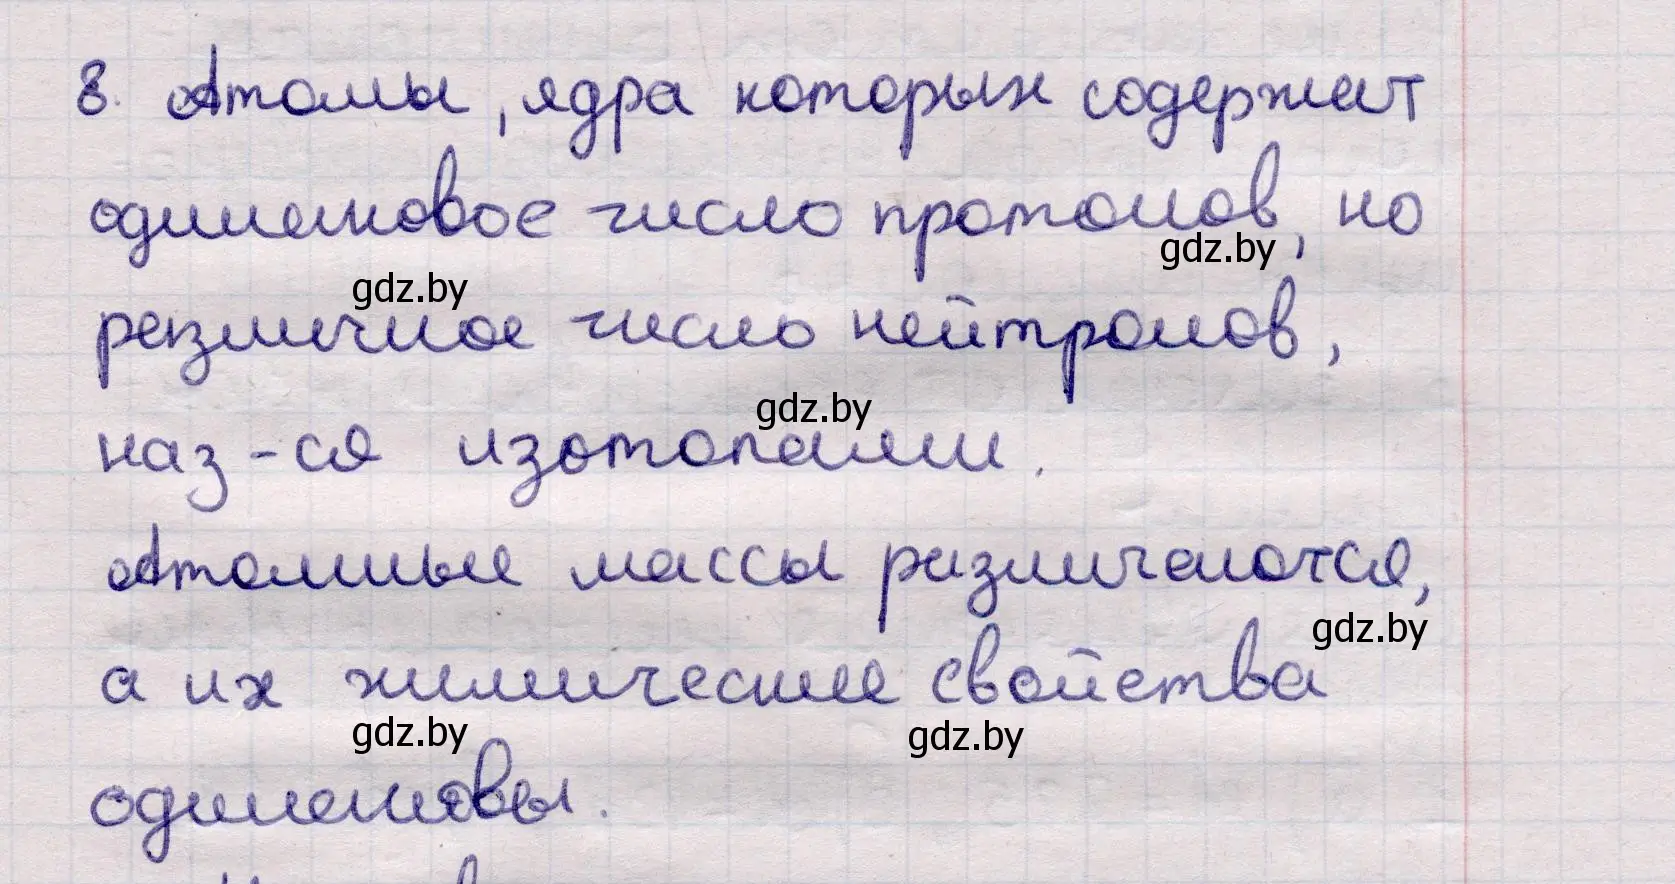 8. Атомы, ядра которых содержат
одинаковое число протонов, но
gdz.by
gdz.by
различное число нейтронов,
gdz.by
наз-ся изотопами.
Атомные массы различаются,
gdz.by
а их химические свойства
gdz.by
gdz.by
одинаковы.